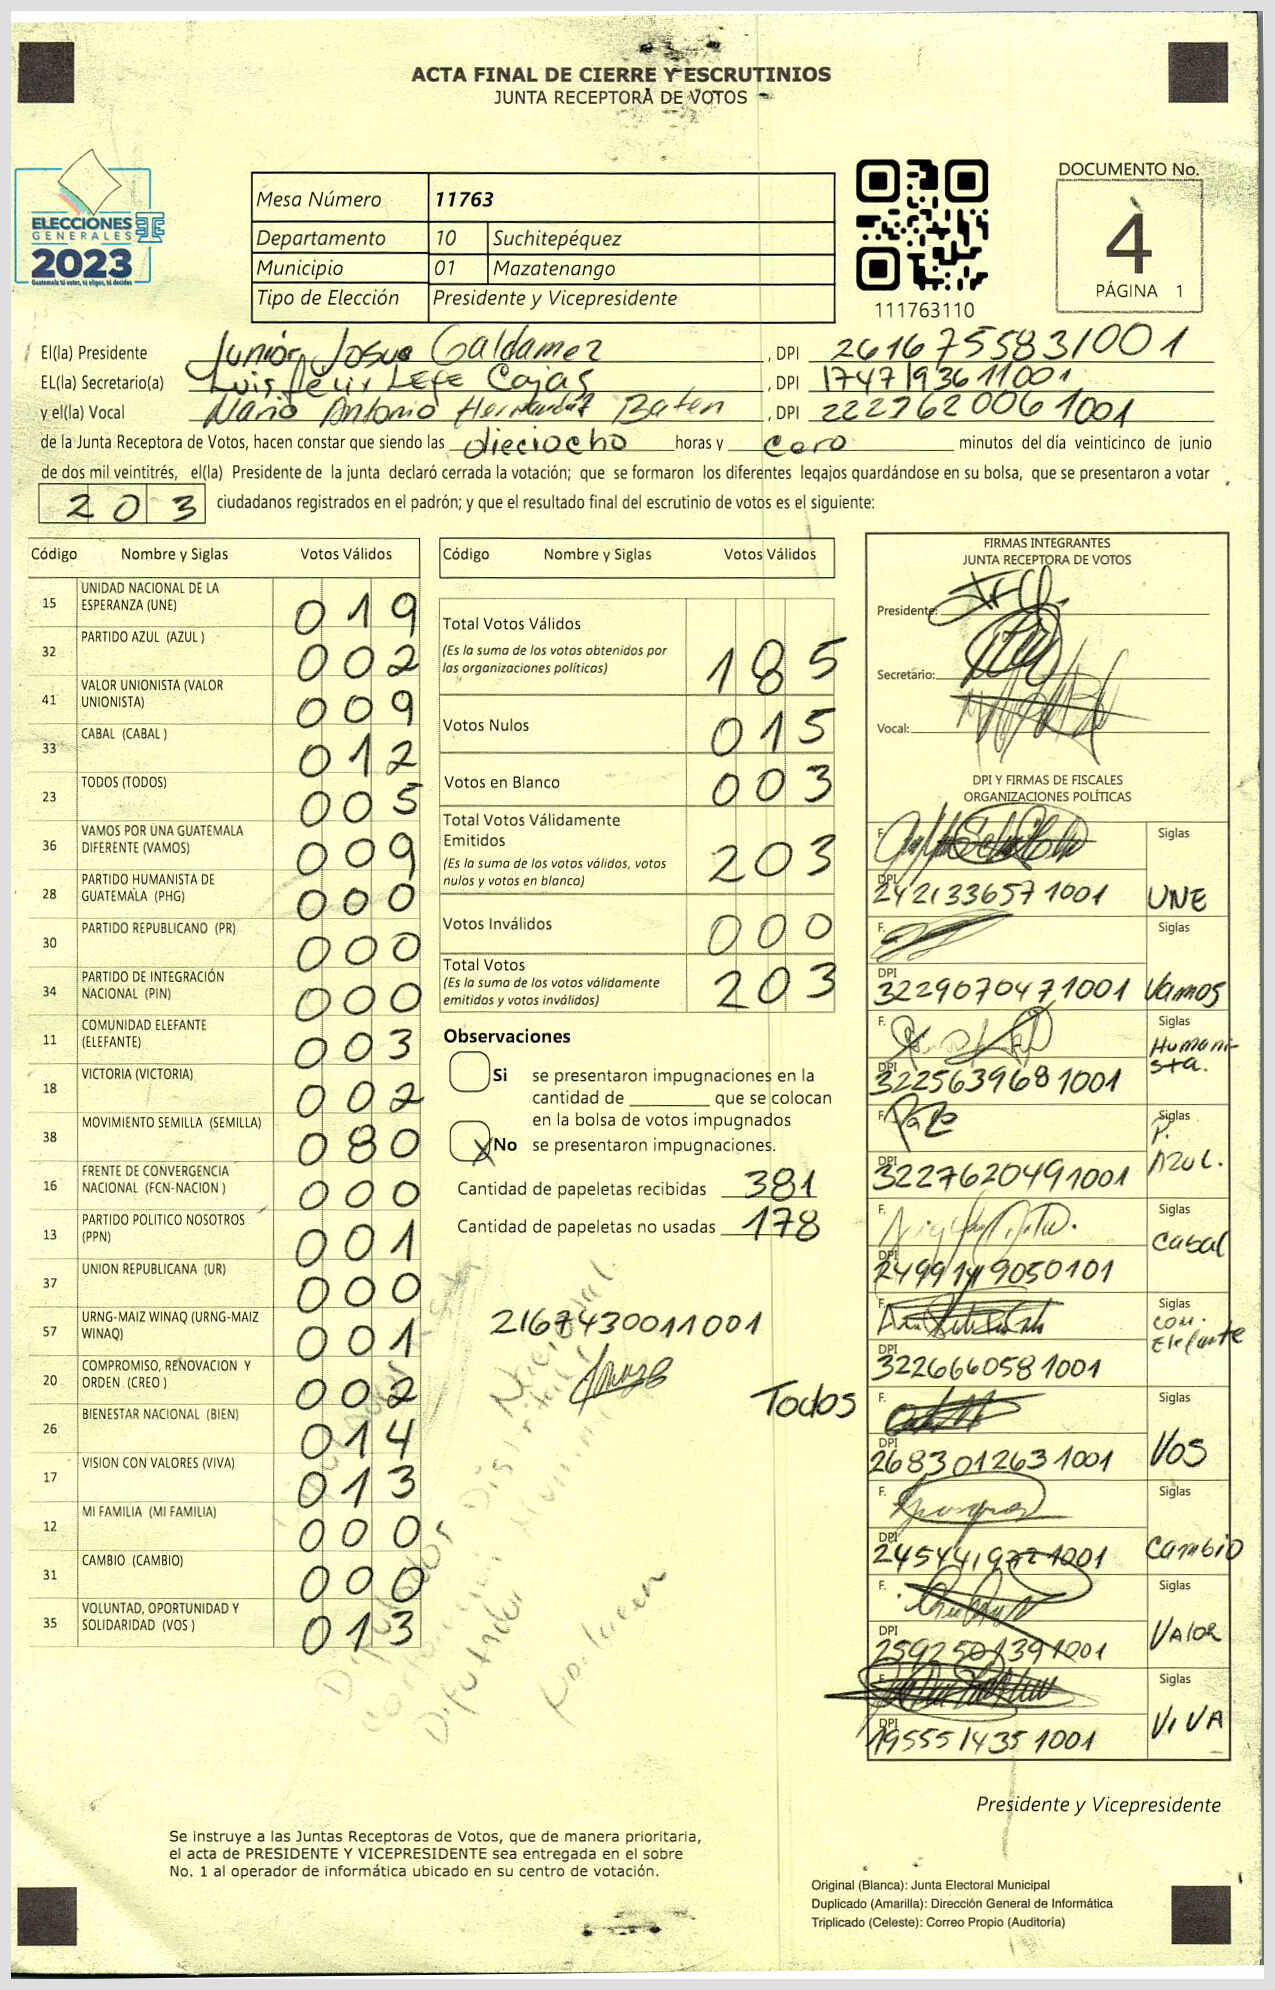 ACTA FINAL DE CIERRE Y ESCRUTINIOS
JUNTA RECEPTORA DE VOTOS
ELECCIONES
GENERALES
2023
Guatemala tú votas, tú eliges, tú decides
Mesa Número 11763
Departamento 10 Suchitepéquez
Municipio 01 Mazatenango
Tipo de Elección Presidente y Vicepresidente
111763110
DOCUMENTO No.
4
PÁGINA 1
El(la) Presidente Junior Josue Galdamez , DPI 2616755831001
EL(la) Secretario(a) Luis Felix LEFE Cojas , DPI 1747193611001
y el(la) Vocal Mario Antonio Hernandez Baten , DPI 2227620061001
de la Junta Receptora de Votos, hacen constar que siendo las dieciocho horas y cero minutos del día veinticinco de junio
de dos mil veintitrés, el(la) Presidente de la junta declaró cerrada la votación; que se formaron los diferentes legajos quardándose en su bolsa, que se presentaron a votar
203 ciudadanos registrados en el padrón; y que el resultado final del escrutinio de votos es el siguiente:
Código Nombre y Siglas Votos Válidos
15 UNIDAD NACIONAL DE LA ESPERANZA (UNE) 019
32 PARTIDO AZUL (AZUL ) 002
41 VALOR UNIONISTA (VALOR UNIONISTA) 009
33 CABAL (CABAL ) 012
23 TODOS (TODOS) 005
36 VAMOS POR UNA GUATEMALA DIFERENTE (VAMOS) 009
28 PARTIDO HUMANISTA DE GUATEMALA (PHG) 000
30 PARTIDO REPUBLICANO (PR) 000
34 PARTIDO DE INTEGRACIÓN NACIONAL (PIN) 000
11 COMUNIDAD ELEFANTE (ELEFANTE) 003
18 VICTORIA (VICTORIA) 002
38 MOVIMIENTO SEMILLA (SEMILLA) 080
16 FRENTE DE CONVERGENCIA NACIONAL (FCN-NACION ) 000
13 PARTIDO POLITICO NOSOTROS (PPN) 001
37 UNION REPUBLICANA (UR) 000
57 URNG-MAIZ WINAQ (URNG-MAIZ WINAQ) 001
20 COMPROMISO, RENOVACION Y ORDEN (CREO ) 002
26 BIENESTAR NACIONAL (BIEN) 014
17 VISION CON VALORES (VIVA) 013
12 MI FAMILIA (MI FAMILIA) 000
31 CAMBIO (CAMBIO) 000
35 VOLUNTAD, OPORTUNIDAD Y SOLIDARIDAD (VOS ) 013
Código Nombre y Siglas Votos Válidos
Total Votos Válidos 185
(Es la suma de los votos obtenidos por
las organizaciones políticas)
Votos Nulos 015
Votos en Blanco 003
Total Votos Válidamente
Emitidos 203
(Es la suma de los votos válidos, votos
nulos y votos en blanco)
Votos Inválidos 000
Total Votos 203
(Es la suma de los votos válidamente
emitidos y votos inválidos)
Observaciones
Si se presentaron impugnaciones en la
cantidad de ________ que se colocan
en la bolsa de votos impugnados
X No se presentaron impugnaciones.
Cantidad de papeletas recibidas 381
Cantidad de papeletas no usadas 178
2167430011001
Todos
FIRMAS INTEGRANTES
JUNTA RECEPTORA DE VOTOS
Presidente:
Secretario:
Vocal:
DPI Y FIRMAS DE FISCALES
ORGANIZACIONES POLÍTICAS
F. Siglas
DPI 2421336571001 UNE
F. Siglas
DPI 3229070471001 Vamos
F. Siglas
DPI 3225639681001 Humanista.
F. Siglas
DPI 3227620491001 P. Azul.
F. Siglas
DPI 2499149050101 Cabal
F. Siglas
DPI 3226660581001 com. Elefante
F. Siglas
DPI 2683012631001 VOS
F. Siglas
DPI 2454419721001 Cambio
F. Siglas
DPI 2592501391001 VALOR
F. Siglas
DPI 1955514351001 VIVA
Presidente y Vicepresidente
Se instruye a las Juntas Receptoras de Votos, que de manera prioritaria,
el acta de PRESIDENTE Y VICEPRESIDENTE sea entregada en el sobre
No. 1 al operador de informática ubicado en su centro de votación.
Original (Blanca): Junta Electoral Municipal
Duplicado (Amarilla): Dirección General de Informática
Triplicado (Celeste): Correo Propio (Auditoría)